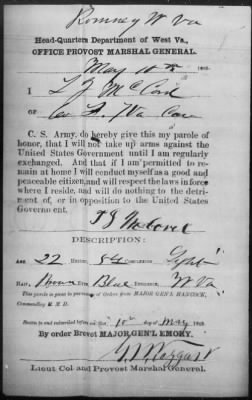 Romney W Va
Head-Quarters Department of West Va.,
OFFICE PROVOST MARSHAL GENERAL.
May 10th 1865.
I
of Co F. Va Cav
C. S. Army, do hereby give this my parole of
honor, that I will not take up arms against the
United States Government until I am regularly
exchanged. And that if I am permitted to re-
main at home I will conduct myself as a good and
peaceable citizen, and will respect the laws in force
where I reside, and will do nothing to the detri-
ment of, or in opposition to the United States
Government.
DESCRIPTION:
AGE, 22 HEIGHT, COMPLEXION, Light
HAIR, Brown EYES, Blue RESIDENCE, W Va
This parole is given in pursuance of Orders from MAJOR GEN'L HANCOCK,
Commanding M. M. D.
Sworn to and subscribed before me this 10th day of May 1865.
By order Brevet MAJOR GEN'L EMORY.
Lieut Col and Provost Marshal General.